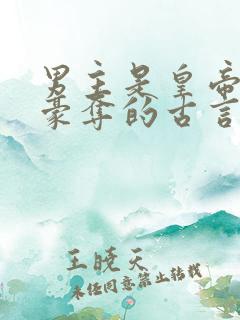 男主是皇帝
豪夺的古言
王晓天
未经同意禁止转载